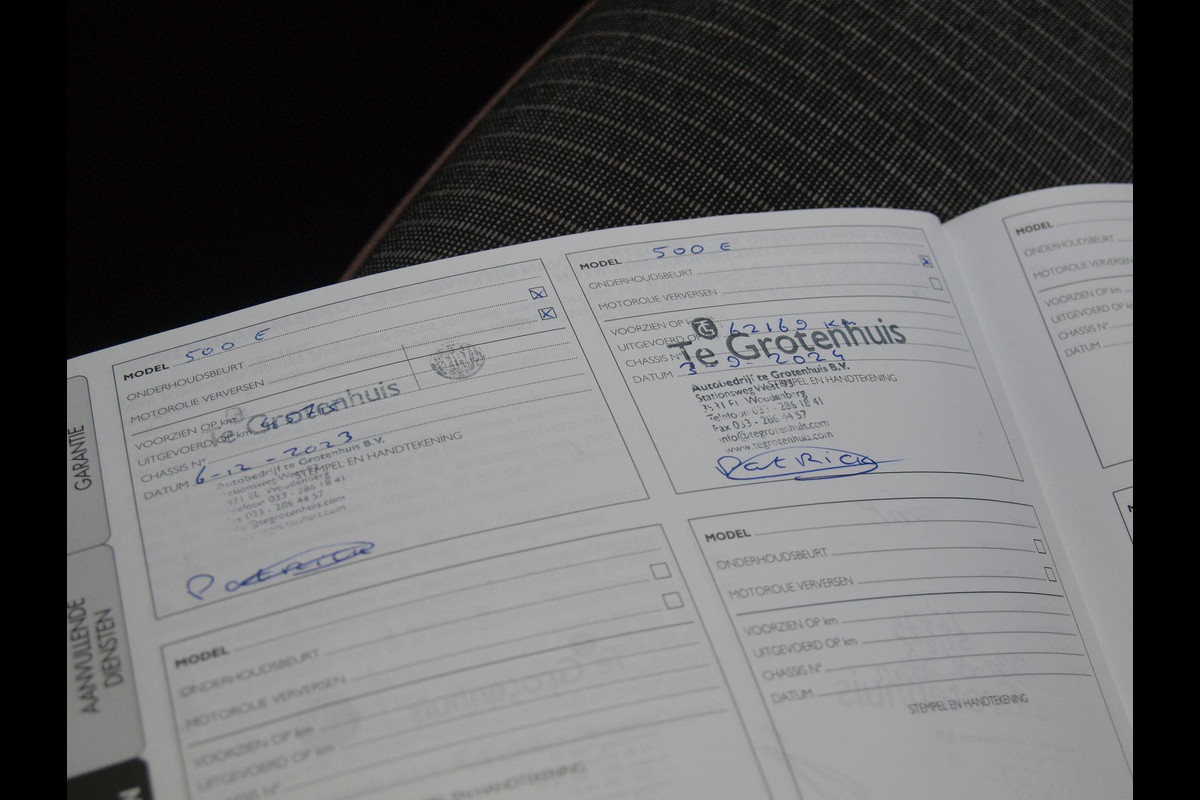 GARANTIE
AANVULLENDE
DIENSTEN
MODEL 500 E
ONDERHOUDSBEURT
MOTOROLIE VERVERSEN
VOORZIEN OP km
UITGEVOERD OP km
CHASSIS N°
DATUM 6-12-2023
Te Grotenhuis
STEMPEL EN HANDTEKENING
Autobedrijf te Grotenhuis B.V.
Stationsweg West
Woudenberg
033 - 286 18 41
033 - 286 44 57
Patrick
MODEL 500 E
ONDERHOUDSBEURT
MOTOROLIE VERVERSEN
VOORZIEN OP km
UITGEVOERD OP 62169 km
CHASSIS N°
Te Grotenhuis
DATUM 3-9-2024
STEMPEL EN HANDTEKENING
Autobedrijf te Grotenhuis B.V.
Stationsweg West
Woudenberg
Telefoon 033 - 286 18 41
Fax 033 - 286 44 57
info@tegrotenhuis.com
www.tegrotenhuis.com
Patrick
MODEL
ONDERHOUDSBEURT
MOTOROLIE VERVERSEN
VOORZIEN OP km
UITGEVOERD OP km
CHASSIS N°
STEMPEL EN HANDTEKENING
MODEL
ONDERHOUDSBEURT
MOTOROLIE VERVERSEN
VOORZIEN OP km
UITGEVOERD OP km
CHASSIS N°
DATUM
STEMPEL EN HANDTEKENING
MODEL
ONDERHOUDSBEURT
MOTOROLIE VERVERSEN
VOORZIEN OP km
UITGEVOERD OP
CHASSIS N°
DATUM